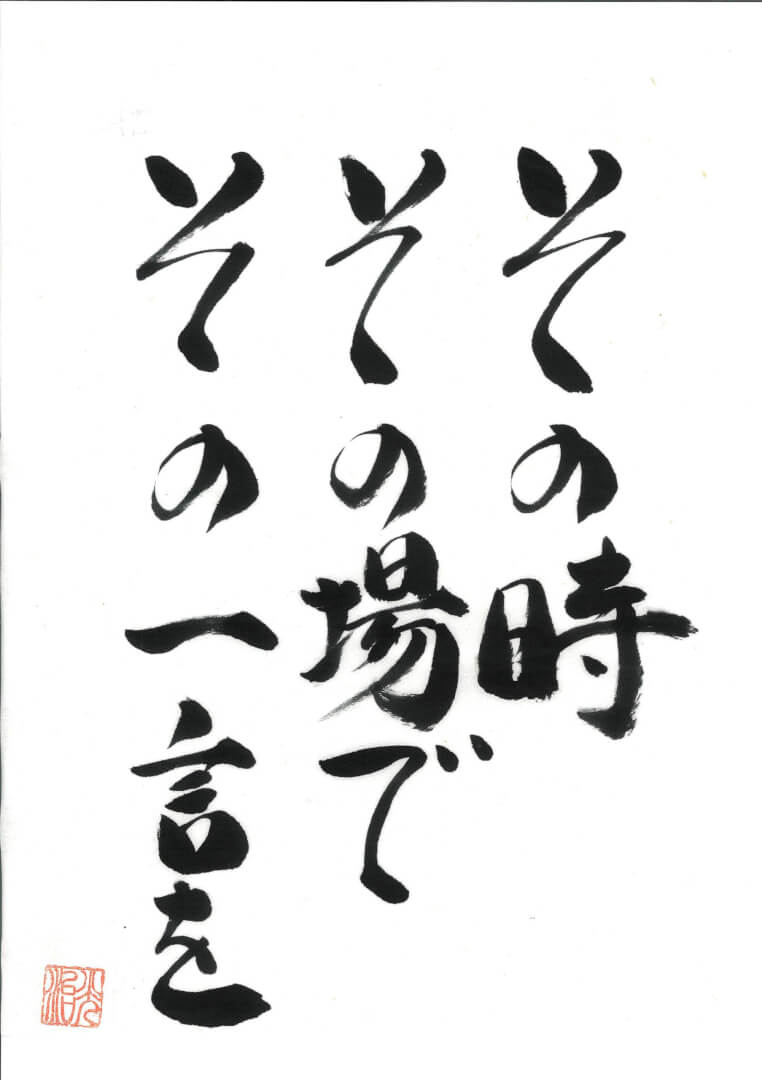 その時
その場で
その一言を